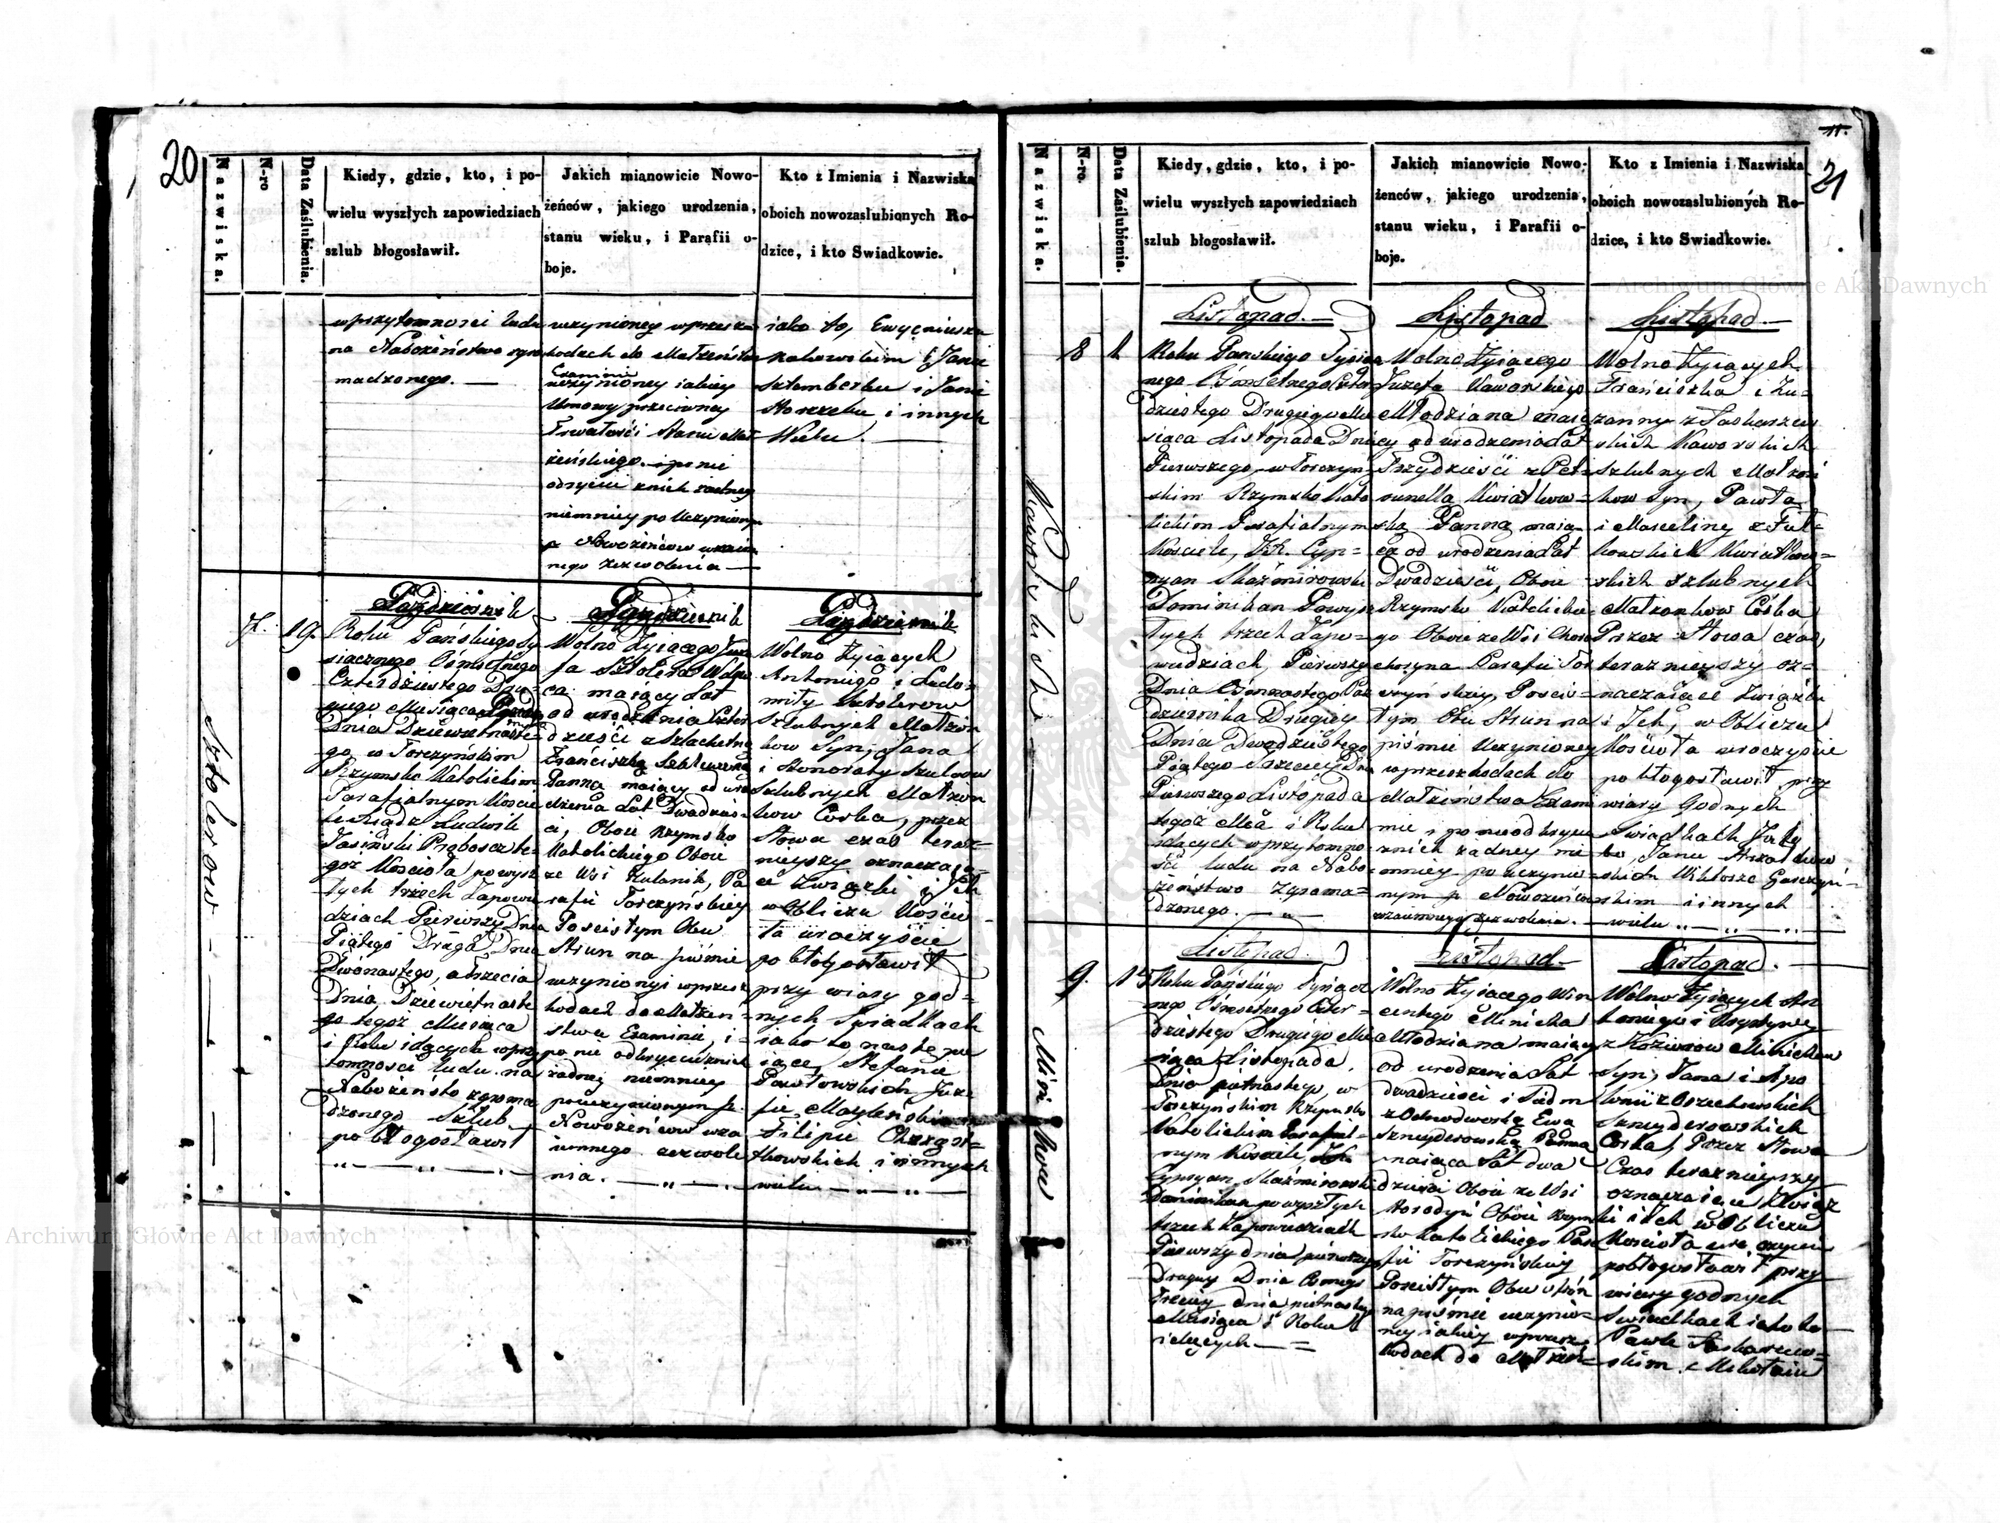 20
Nazwiska.
N-ro
Data Zaślubienia.
Kiedy, gdzie, kto, i po-
wielu wyszłych zapowiedziach
szlub błogosławił.
Jakich mianowicie Nowo-
żeńców, jakiego urodzenia,
stanu wieku, i Parafii o-
boje.
Kto z Imienia i Nazwiska
oboich nowozaslubionych Ro-
dzice, i kto Swiadkowie.
w przytomnosci ludu
na Nabożeństwo zgro
madzonego. —
uczynioney w przesz
kodach do Małżeństwa
Examinie
uczynioney
Umowy przeciwney
Trwałości Stanu Mał
żeńskiego i po nie
odkryciu z nich żadney
niemniey po Uczynionym
p Nowożeńców wzaiem
nego zezwolenia —
iako to,
i Jana
i Janie
i innych
Wielu. —
Październik
7. 19.
Stolerow
Roku Pańskiego Ty
siącznego Ośmsetnego
Czterdziestego Dru-
giego Miesiąca
Dnia Dziewiętnaste-
go, w Torczyńskim
Rzymsko Katolickim
Parafialnym Koście
le Xiądz Ludwik
Jasiński Proboszcz te-
goż Kościoła, po wysz
łych trzech Zapowie
dziach Pierwszy Dnia
Piątego Druga Dnia
Dwónastego, a Trzecia
Dnia Dziewiętnaste
go tegoż Miesiąca
i Roku idących w przy
tomności ludu na
Nabożeństwo zgroma
dzonego Szlub
pobłogosławił
Październik
Wolno Żyiącego Józe
fa Stolera Wdow
ca maiący Lat
od urodzenia Czter
dzieści z Szlachetną
Franciszką
Panną maiący od uro
dzenia Lat Dwadzieś
ci, Oboie Rzymsko
Katolickiego Oboie
ze Wsi Kulanik, Pa
rafii Torczyńskiey
Poscistym Obu
Stron na piśmie
uczynionyi w przesz
kodach do Małżeń-
stwa Examinie, i-
po nie odkryciu z nich
żadney niemniey
po uczynionym p.
Nowożeńców wza
iemnego zezwole
nia. — „ — „
Październik
Wolno Żyiących
Antoniego i Ludo-
miły Stolerow
Szlubnych Małżon
kow Syn, Jana
i Honoraty Szulcow
Szlubnych Małżon
kow Corka, przez
Słowa czas teraz-
nieyszy oznaczaią-
ce Związki i Ich
w Obliczu Koście
ła uroczyście
pobłogosławił
przy wiary god-
nych Świadkach
iako to następu
iące, Stefanie
Pawłowskich Józe
fie
Filipie Chrząst-
kowskich i innych
wielu. — „ — „
21
Nazwiska.
N-ro
Data Zaślubienia.
Kiedy, gdzie, kto, i po-
wielu wyszłych zapowiedziach
szlub błogosławił.
Jakich mianowicie Nowo-
żenców, jakiego urodzenia,
stanu wieku, i Parafii o-
boje.
Kto z Imienia i Nazwiska
oboich nowozaslubionych Ro-
dzice, i kto Swiadkowie.
Listopad. —
8 1.
Roku Pańskiego Tysiącz
nego Ośmsetnego Czter
dziestego Drugiego Mie
siąca Listopada Dnia
Pierwszego, w Torczyn-
skim Rzymsko Kato
lickim Parafialnym
Kosciele, JX. Cyp-
ryan Kaźmirowski
Dominikan Powysz
łych trzech Zapo-
wiedziach, Pierwszy
Dnia Ośmnastego Paź
dziernika Drugiey
Dnia Dwadziestego
Piątego Trzeciey Dnia
Pierwszego Listopada
tegoż Mca i Roku
idących w przytomno
ści ludu na Nabo
żeństwo zgroma-
dzonego. — „ —
Listopad
Wolno Żyiącego
Jozefa Kaworskiego
Młodziana maią
cy od urodzenia Lat
Trzydzieści z Pet-
ronellą Kwiatkow-
ską Panną maią-
cą od urodzenia Lat
Dwadzieści, Oboie
Rzymsko Katolickie
go Oboie ze Wsi Choro
choryna Parafii Tor
czyńskiey, Poscis-
tym Obu Stron na
piśmie uczynioney
w przeszkodach do
Małżeństwa Exam
inie i po nieodkryciu
z nich żadney nie
mniey po uczynio-
nym p Nowożeńców
wzaiemnego zezwolenia. —
Listopad. —
Wolno Żyiących
Franciszka i Zu-
zanny z Saskarzew
skich Kaworskich
Szlubnych Małżon
kow Syn, Pawła
i Marcelliny z Fał-
kowskich Kwiatkow-
skich szlubnych
Małżonkow Corka
Przez Słowa czas
teraznieyszy oz-
naczaiące Związki
i Ich, w Obliczu
Kościoła uroczyście
pobłogosławił przy
wiary Godnych
Świadkach Jako
to, Janu
skich Wiktorze
skim i innych
wielu — „ — „
Listopad.
9. 15
Minichow
Roku Pańskiego Tysiącz
nego Ośmsetnego Czter-
dziestego Drugiego Mie
siąca Listopada,
Dnia piętnastego, w
Torczyńskim Rzymsko
Katolickim Parafial-
nym Kosciele,
Cypryan Kaźmirowski
Dominikan po wyszłych
trzech Zapowiedziach
Pierwszy dnia pierwszego
Drugiey Dnia Osmego
Trzeciey dnia piętnastego
Miesiąca i Roku
idących — =
Listopad
Wolno Żyiącego Win
centego Minicha
Młodziana maiący
od urodzenia Lat
dwadzieści i siedm
z Ewą
Sznyderowską Panną
maiąca Lat dwa
dzieści Oboie ze Wsi
Oboie Rzym
sko Katolickiego Para
fii Torczyńskiey
Poscistym Obu stron
na piśmie uczynio-
ney iakiey w przesz-
kodach do Małżeń-
Listopad. —
Wolno Żyiących An
toniego i Krystyny
z Minichow
Syn, Jana i Apo
lonii z Orzechowskich
Sznyderowskich
Corka, Przez Słowa
Czas teraznieyszy
oznaczaiące Związ
ki i Ich w Obliczu
Kościoła uroczyście
pobłogosławił przy
wiary godnych
świadkach iako to
Pawle Saskarzew-
skim i Mikołaiu
Archiwum Główne Akt Dawnych
Archiwum Główne Akt Dawnych